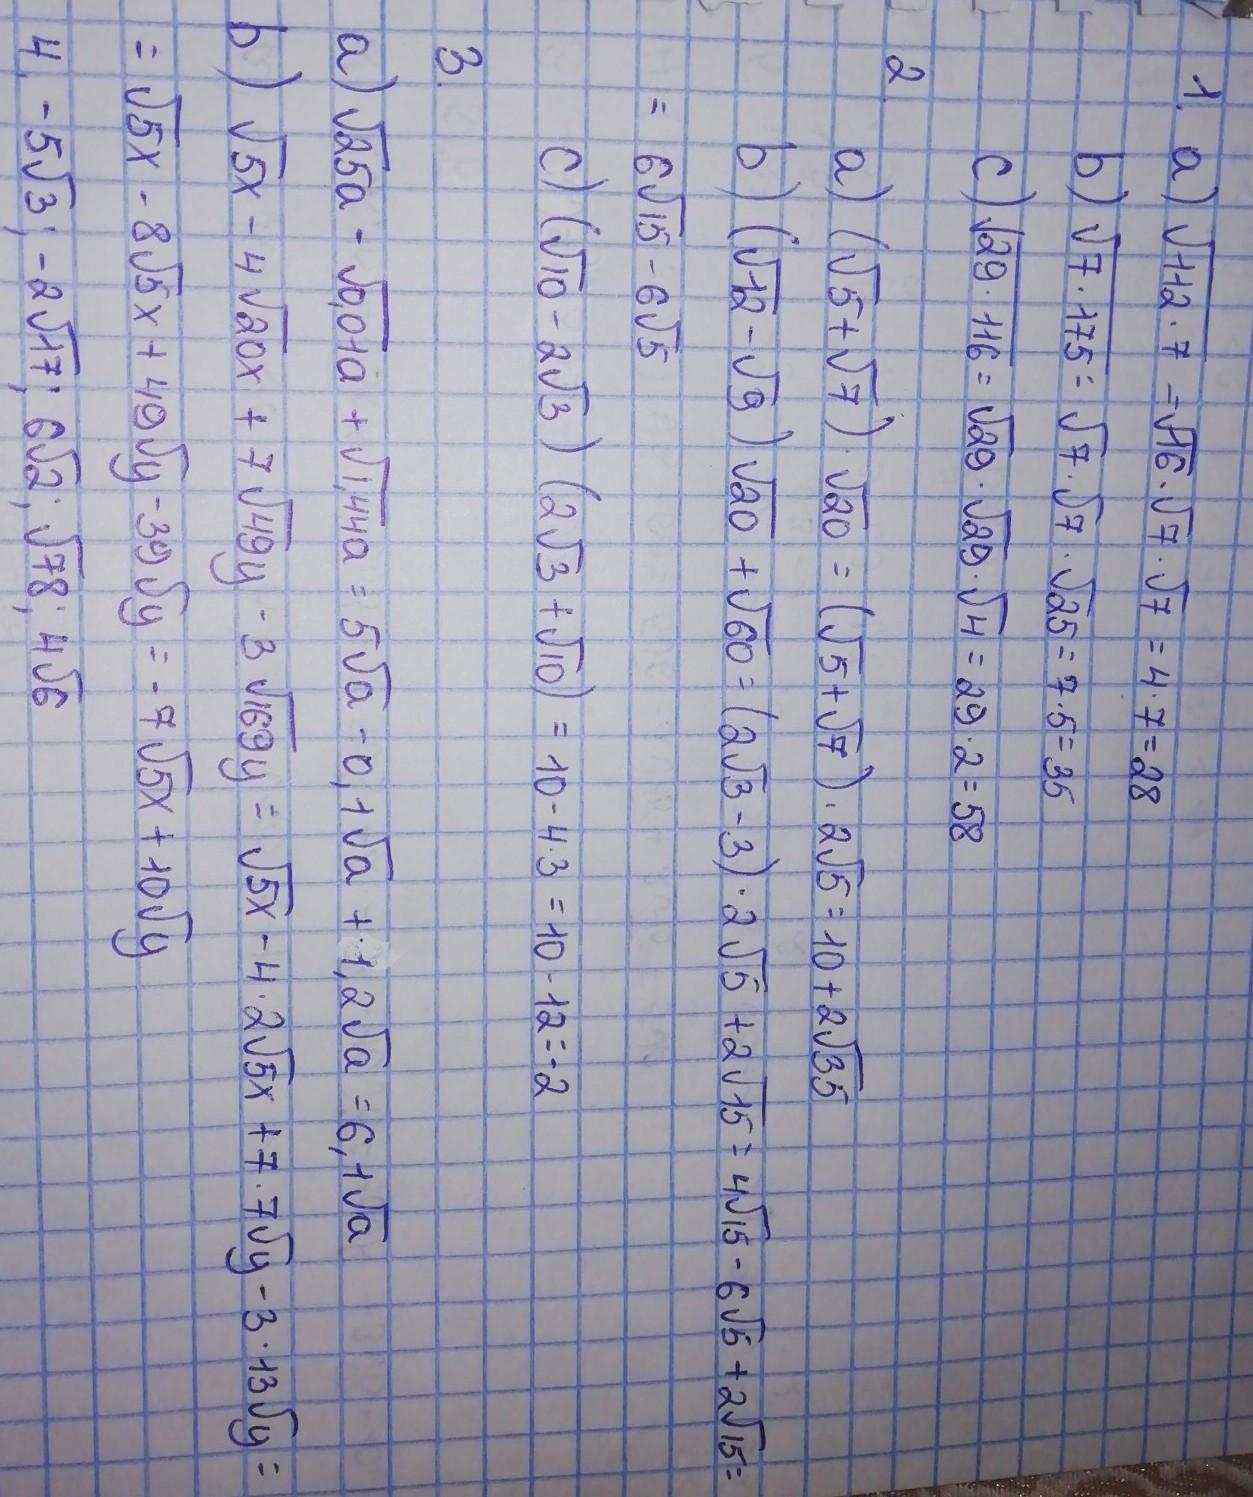 1. a) √112·7 = √16·√7·√7 = 4·7=28
b) √7·175 = √7·√7·√25 = 7·5=35
c) √29·116 = √29·√29·√4 = 29·2=58
2.
a) (√5+√7)·√20 = (√5+√7)·2√5 = 10+2√35
b) (√12-√9)√20+√60 = (2√3-3)·2√5+2√15 = 4√15-6√5+2√15 =
= 6√15-6√5
c) (√10-2√3)(2√3+√10) = 10-4·3 = 10-12=-2
3.
a) √25a - √0,01a + √1,44a = 5√a - 0,1√a + 1,2√a = 6,1√a
b) √5x - 4√20x + 7√49y - 3√169y = √5x - 4·2√5x + 7·7√y - 3·13√y =
= √5x - 8√5x + 49√y - 39√y = -7√5x + 10√y
4. -5√3; -2√17; 6√2; √78; 4√6